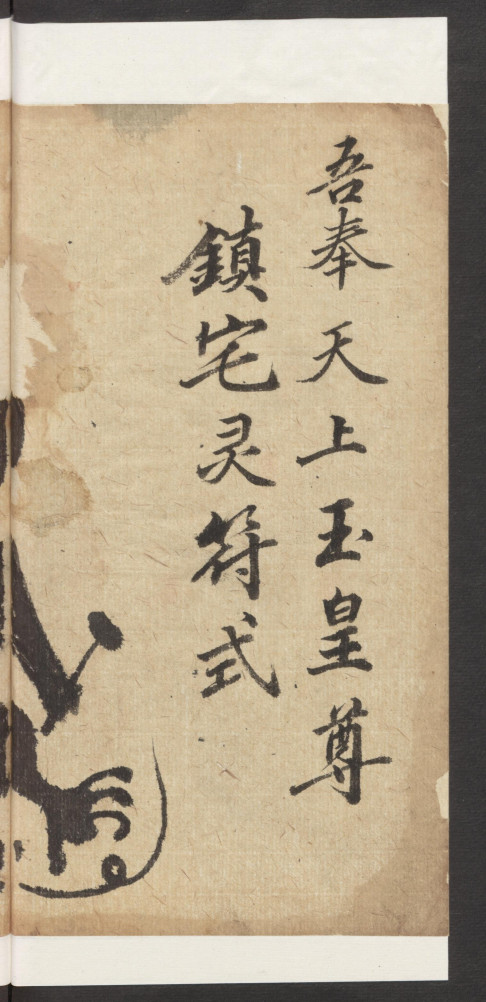 吾奉天上玉皇尊
鎮宅灵符式